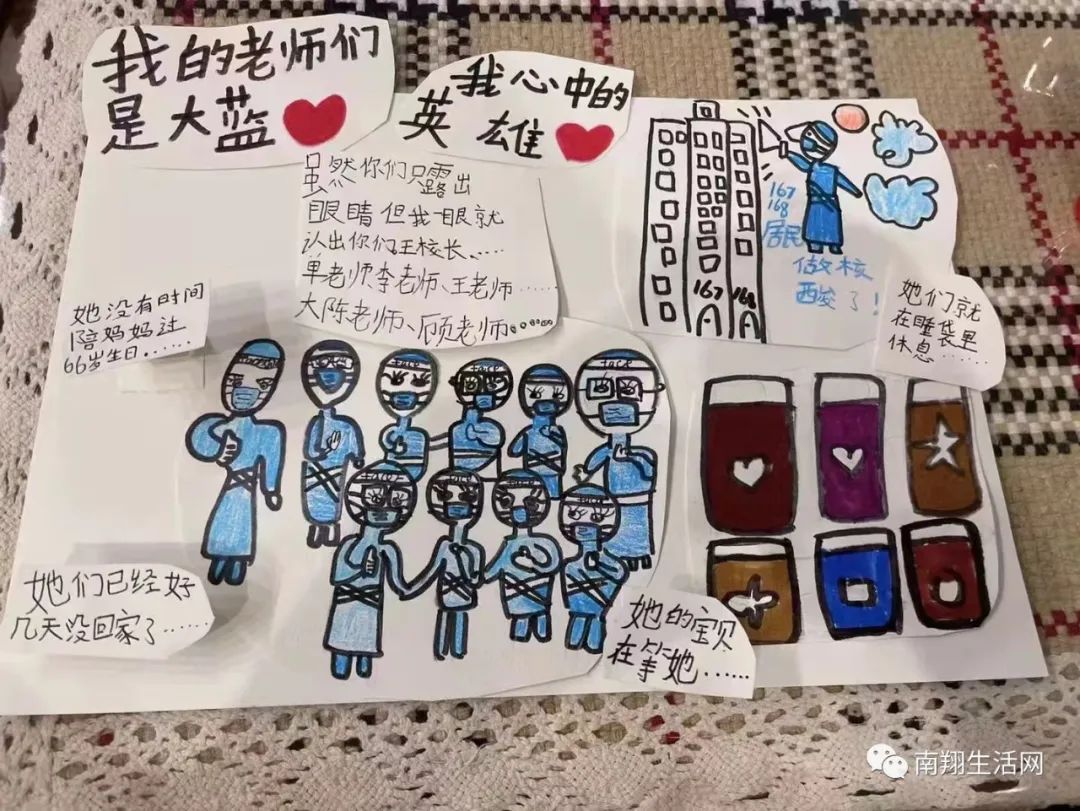 我的老师们
是大蓝
我心中的
英雄
虽然你们只露出
眼睛但我一眼就
认出你们王校长、……
单老师李老师、王老师……
大陈老师、顾老师……
167
168
居民
做核
酸了！
167
168
她没有时间
陪妈妈过
66岁生日……
她们就
在睡袋里
休息……
face
face
face
face
face
她们已经好
几天没回家了……
她的宝贝
在等她……
南翔生活网